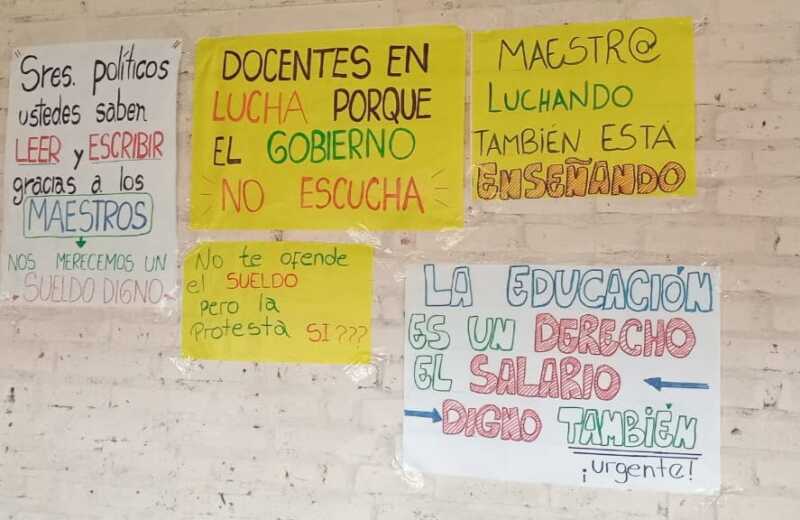 Sres. políticos
ustedes saben
LEER y ESCRIBIR
gracias a los
MAESTROS
NOS MERECEMOS UN
SUELDO DIGNO
DOCENTES EN
LUCHA PORQUE
EL GOBIERNO
NO ESCUCHA
MAESTR@
LUCHANDO
TAMBIÉN ESTÁ
ENSEÑANDO
No te ofende
el SUELDO
pero la
Protesta SI???
LA EDUCACIÓN
ES UN DERECHO
EL SALARIO
DIGNO TAMBIÉN
¡urgente!